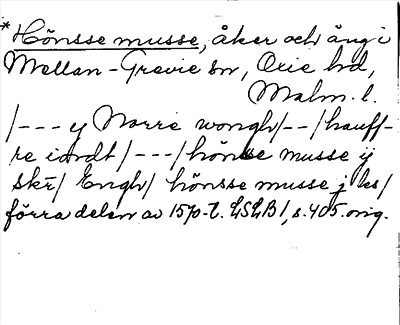 * Hönsse musse, åker och äng i
Mellan-Grevie sn, Oxie hd,
Malm. l.
/--- y Norre wongh/--/hauff-
re iordt/---/hönsse musse ÿ
skr̄/ Engh/ hönsse musse j ls/
förra delen av 1570-t. LSLB1, s. 405. orig.